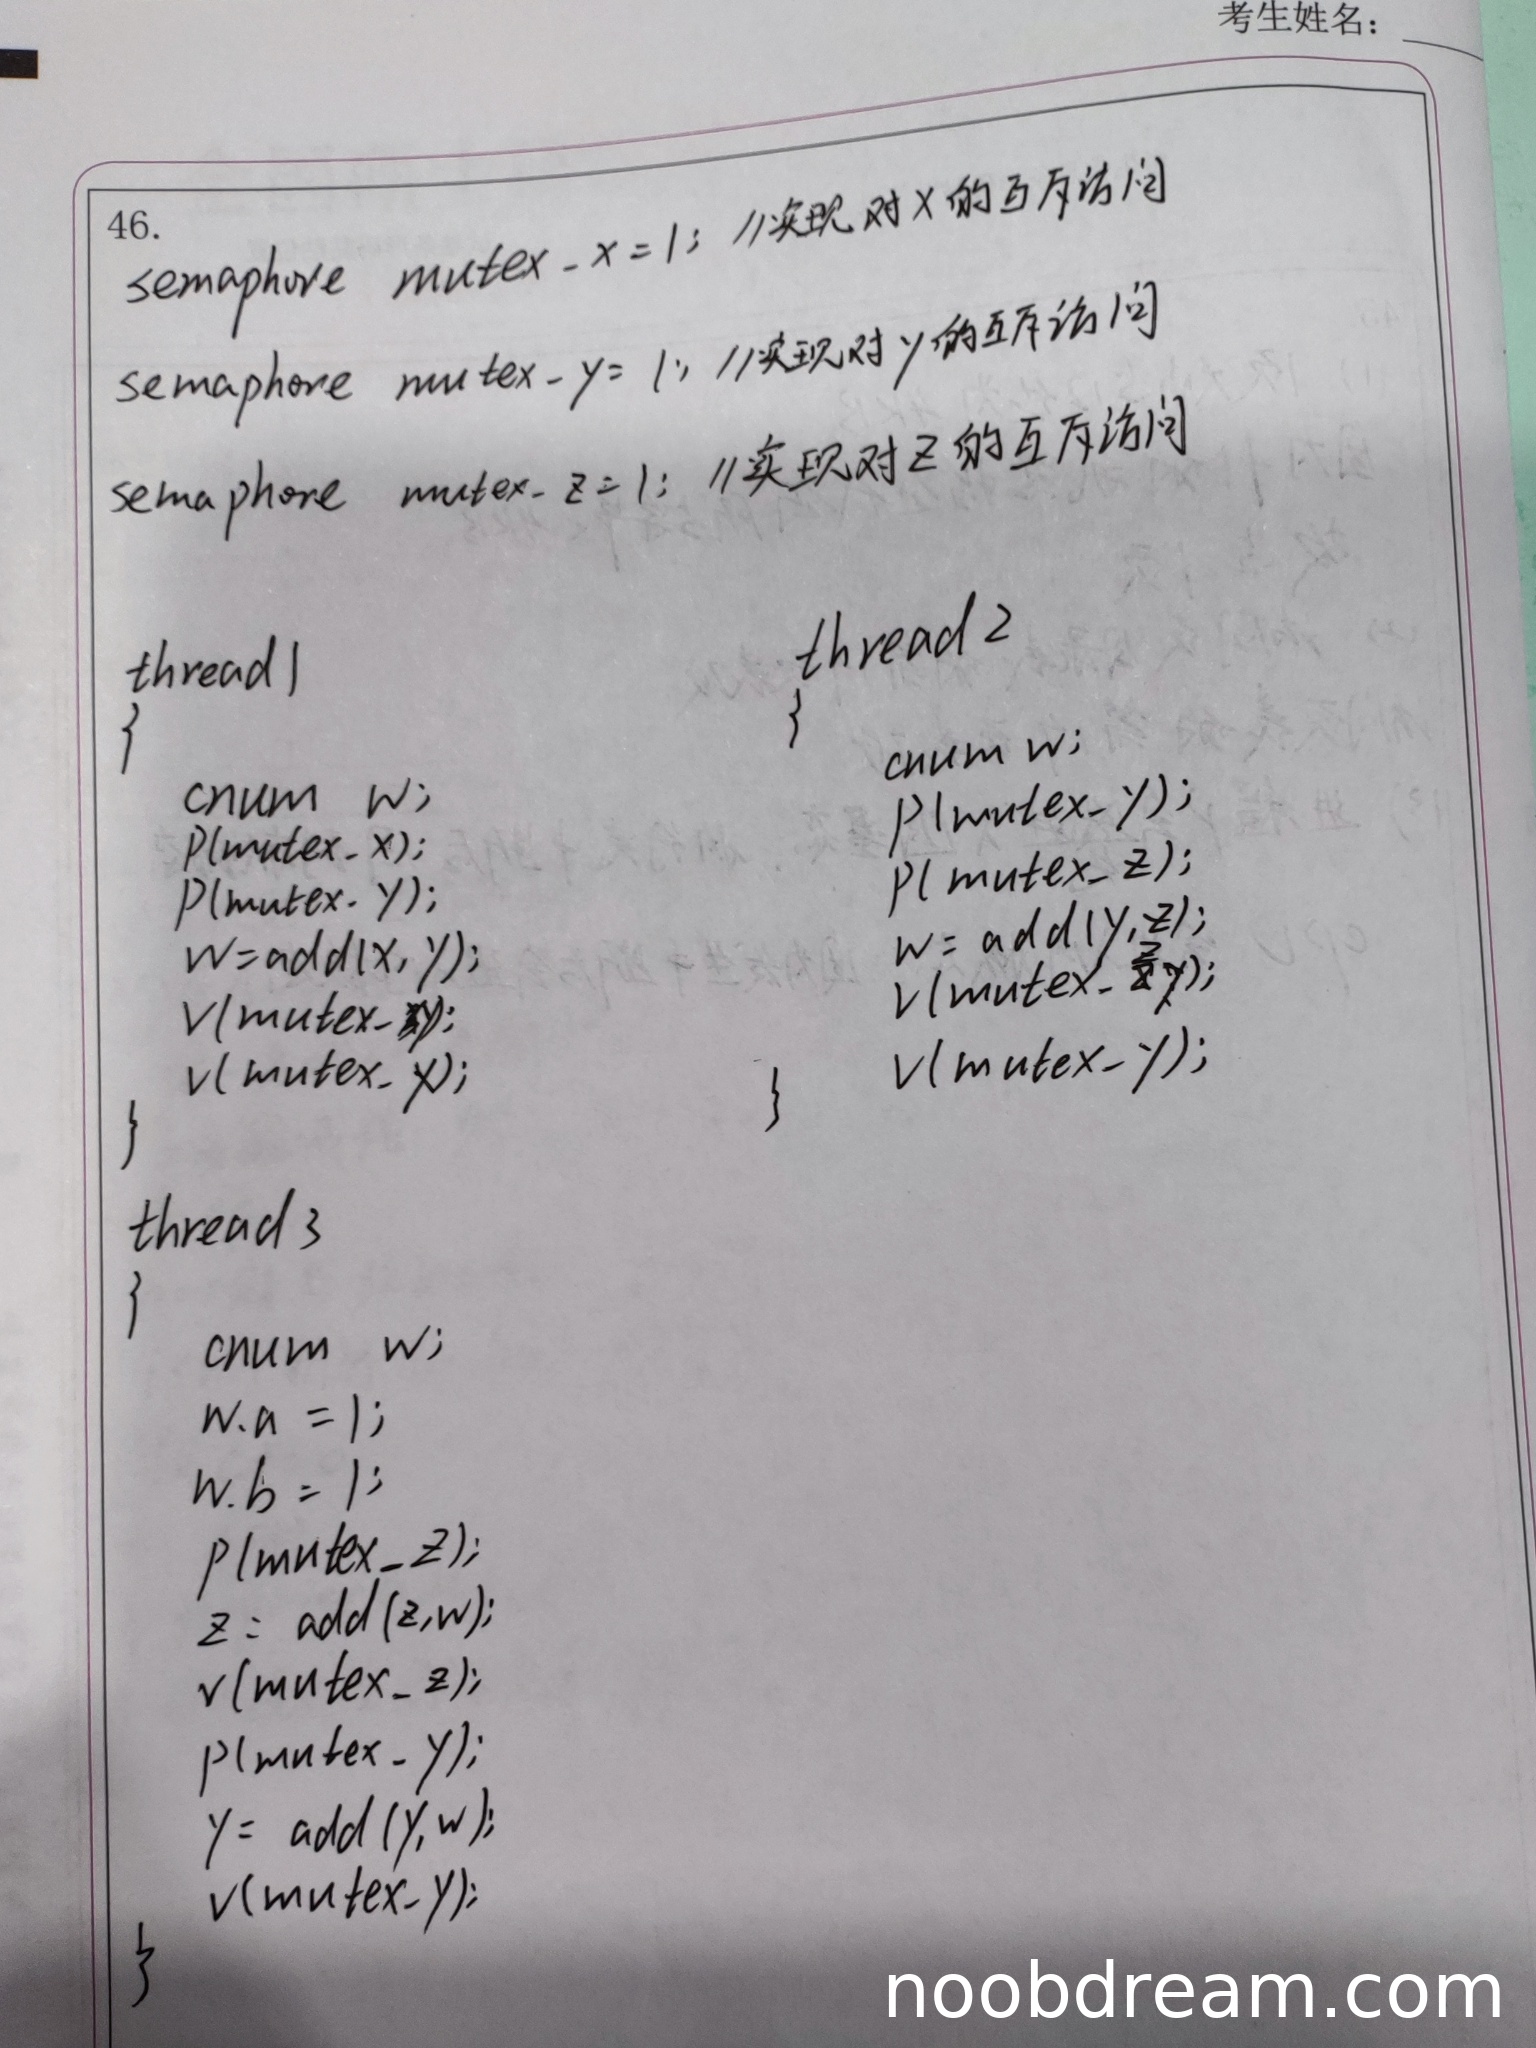 考生姓名:
46.
semaphore mutex_x=1; //实现对x的互斥访问
semaphore mutex_y=1; //实现对y的互斥访问
semaphore mutex_z=1; //实现对z的互斥访问
thread1
{
cnum w;
p(mutex_x);
p(mutex_y);
w=add(x,y);
v(mutex_y);
v(mutex_x);
}
thread2
{
cnum w;
p(mutex_y);
p(mutex_z);
w=add(y,z);
v(mutex_z);
v(mutex_y);
}
thread3
{
cnum w;
w.a=1;
w.b=1;
p(mutex_z);
z=add(z,w);
v(mutex_z);
p(mutex_y);
y=add(y,w);
v(mutex_y);
}
noobdream.com